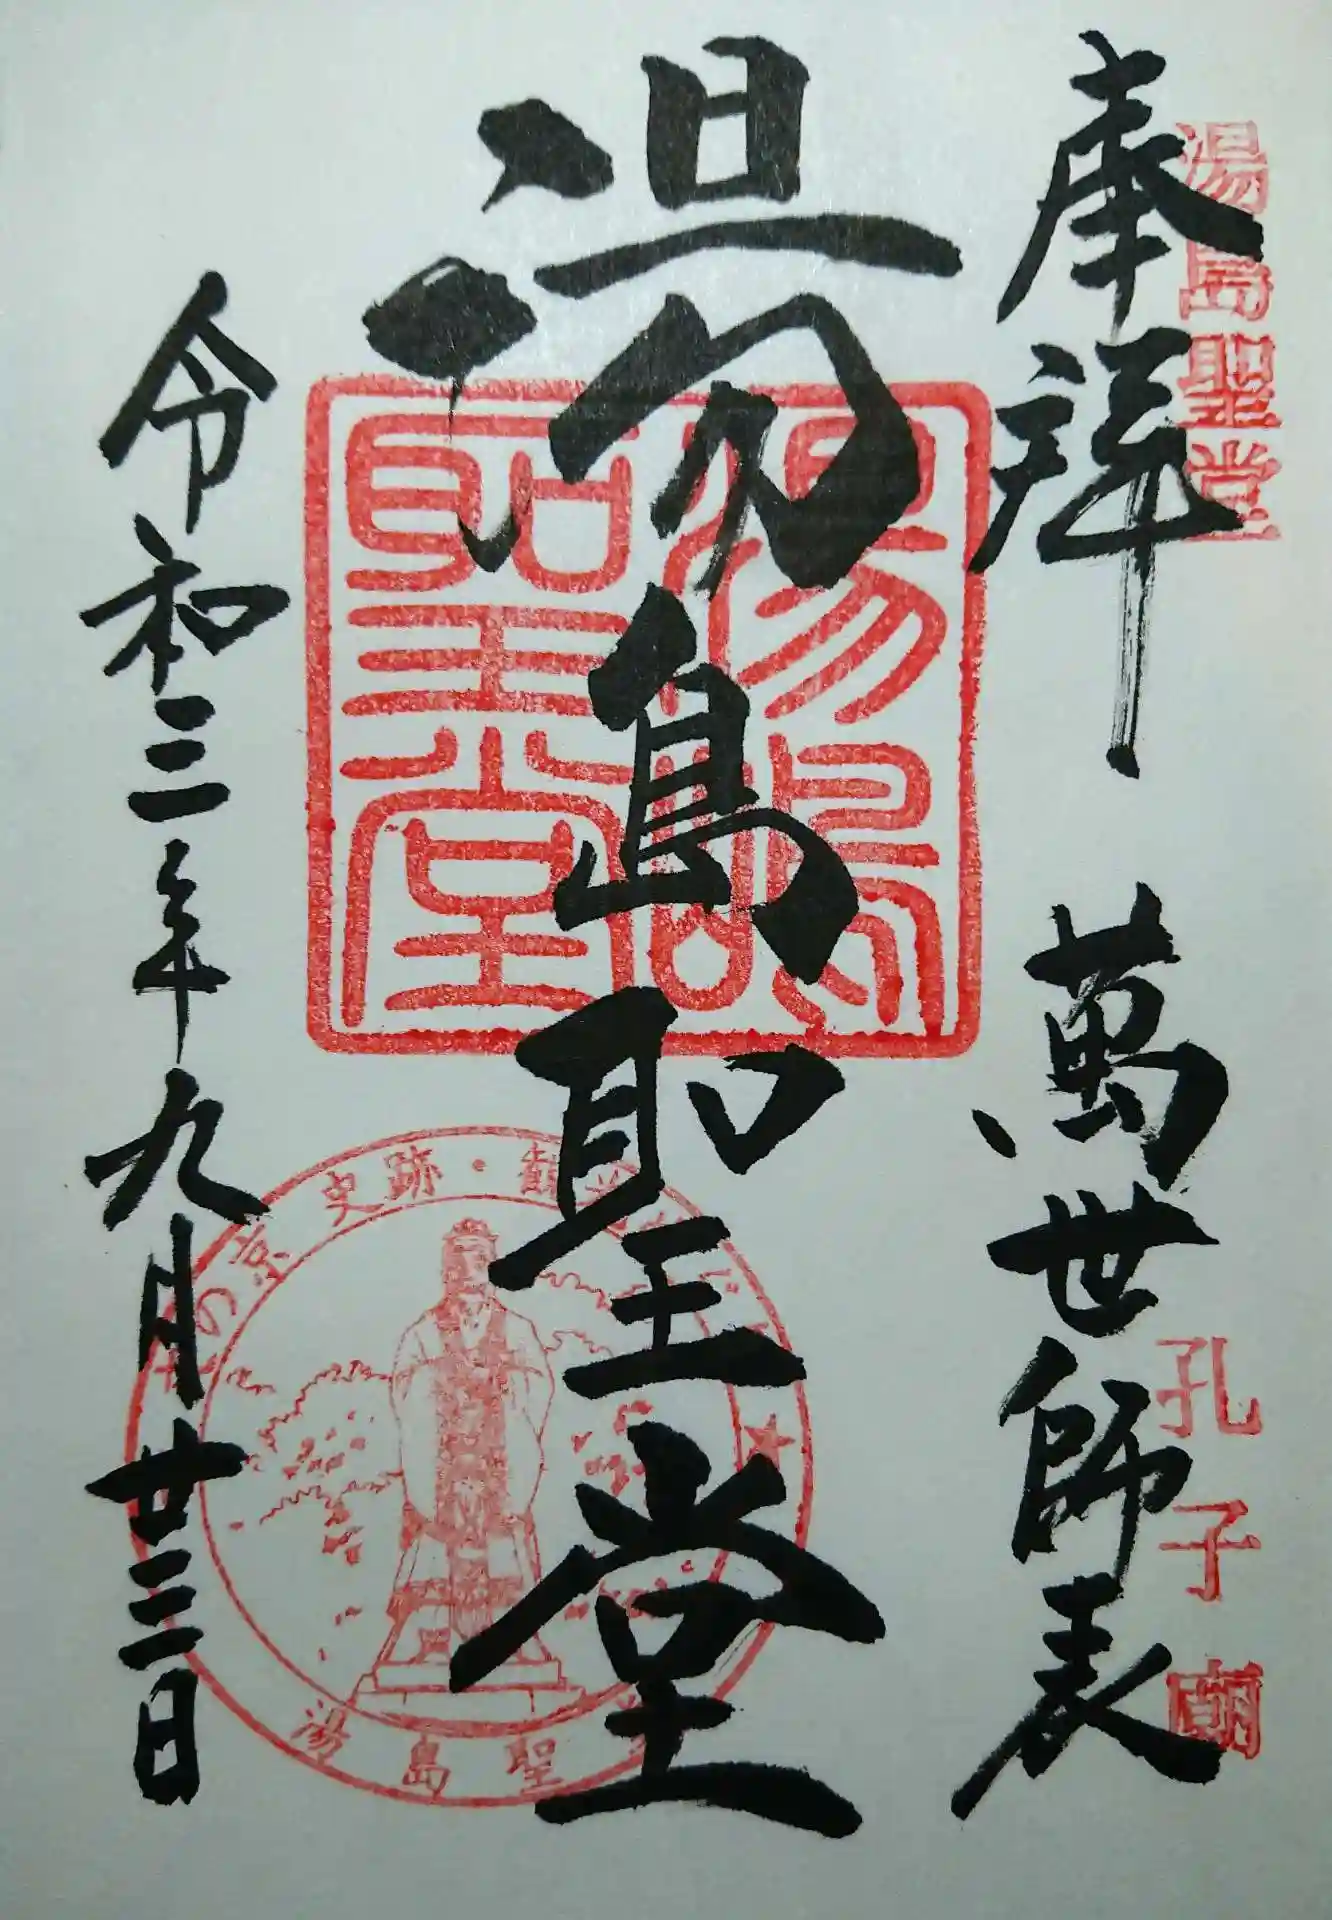 湯島聖堂
奉拝
萬世師表
孔子廟
湯島聖堂
湯島聖堂
令和三年九月廿三日
史跡・観
の京
湯島聖